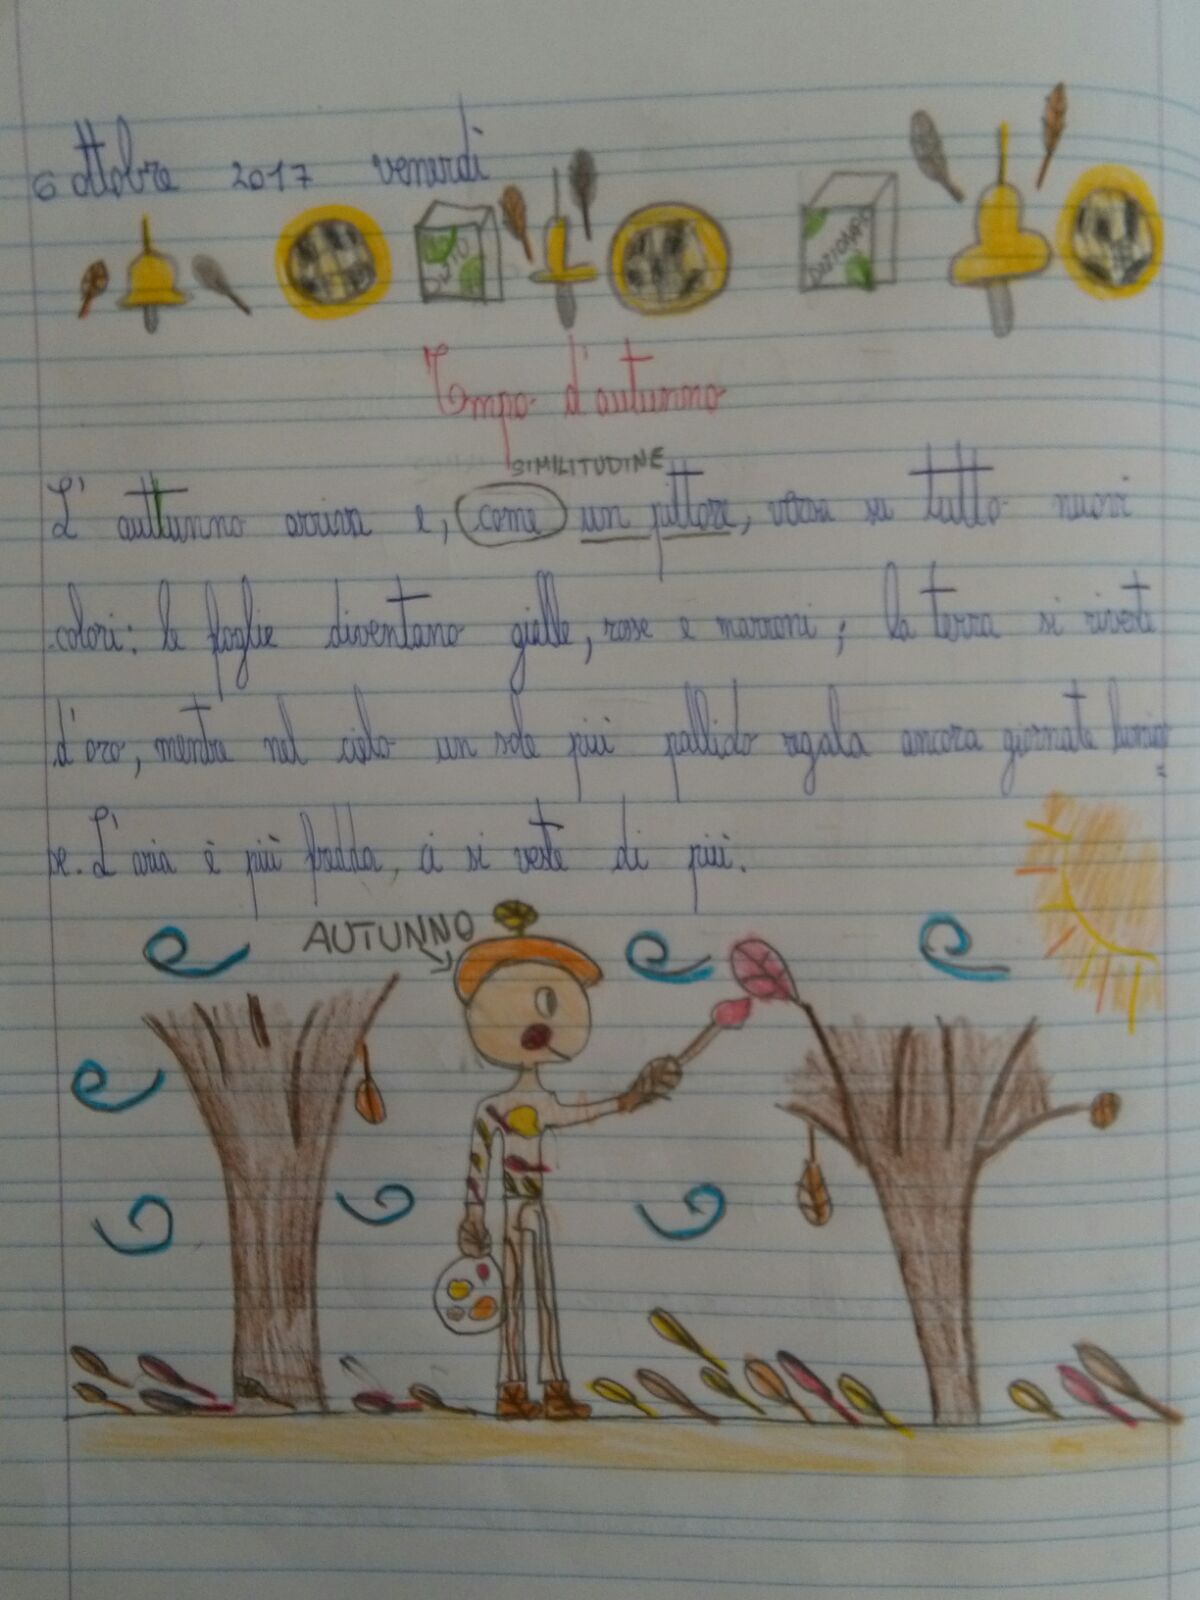 6 ottobre 2017 venerdì
DIZIONARIO
Tempo d'autunno
SIMILITUDINE
L' auttunno arriva e, come un pittore, versa su tutto nuovi
colori: le foglie diventano gialle, rosse e marroni; la terra si riveste
d'oro, mentre nel cielo un sole più pallido regala ancora giornate lumino=
se. L'aria è più fredda, ci si veste di più.
AUTUNNO